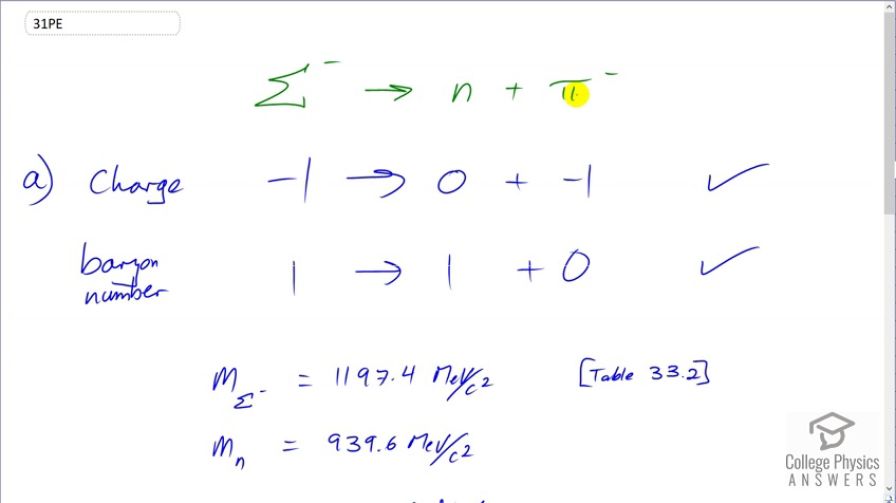 31PE
Σ⁻ → n + π⁻
a) Charge -1 → 0 + -1 ✓
baryon number 1 → 1 + 0 ✓
M_Σ⁻ = 1197.4 MeV/c2 [Table 33.2]
M_n = 939.6 MeV/c2
College Physics
ANSWERS